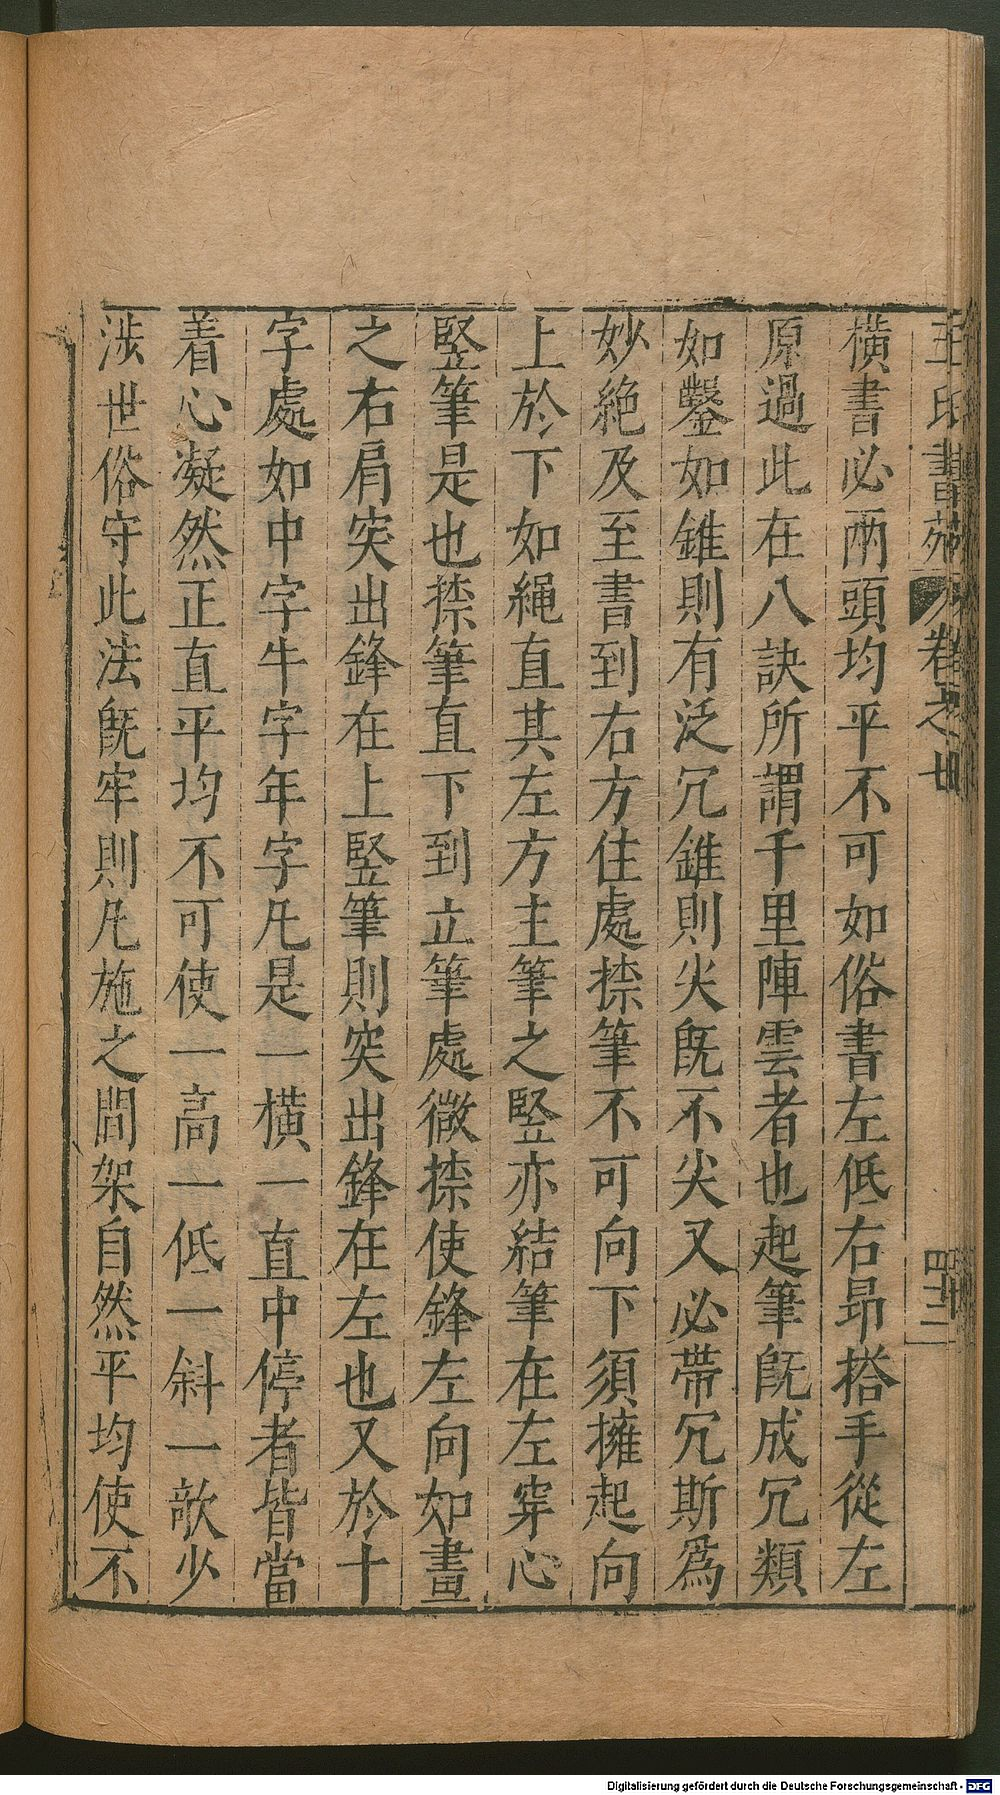 王氏書苑 卷之十 四十二
橫書必兩頭均平不可如俗書左低右昂搭手從左
原過此在八訣所謂千里陣雲者也起筆旣成冗類
如鑿如錐則有泛冗錐則尖旣不尖又必帶冗斯爲
妙絶及至書到右方住處捺筆不可向下須擁起向
上於下如繩直其左方主筆之竪亦結筆在左穿心
竪筆是也捺筆直下到立筆處微捺使鋒左向如畫
之右肩突出鋒在上竪筆則突出鋒在左也又於十
字處如中字牛字年字凡是一橫一直中停者皆當
着心凝然正直平均不可使一高一低一斜一欹少
涉世俗守此法旣牢則凡施之間架自然平均使不
Digitalisierung gefördert durch die Deutsche Forschungsgemeinschaft - DFG